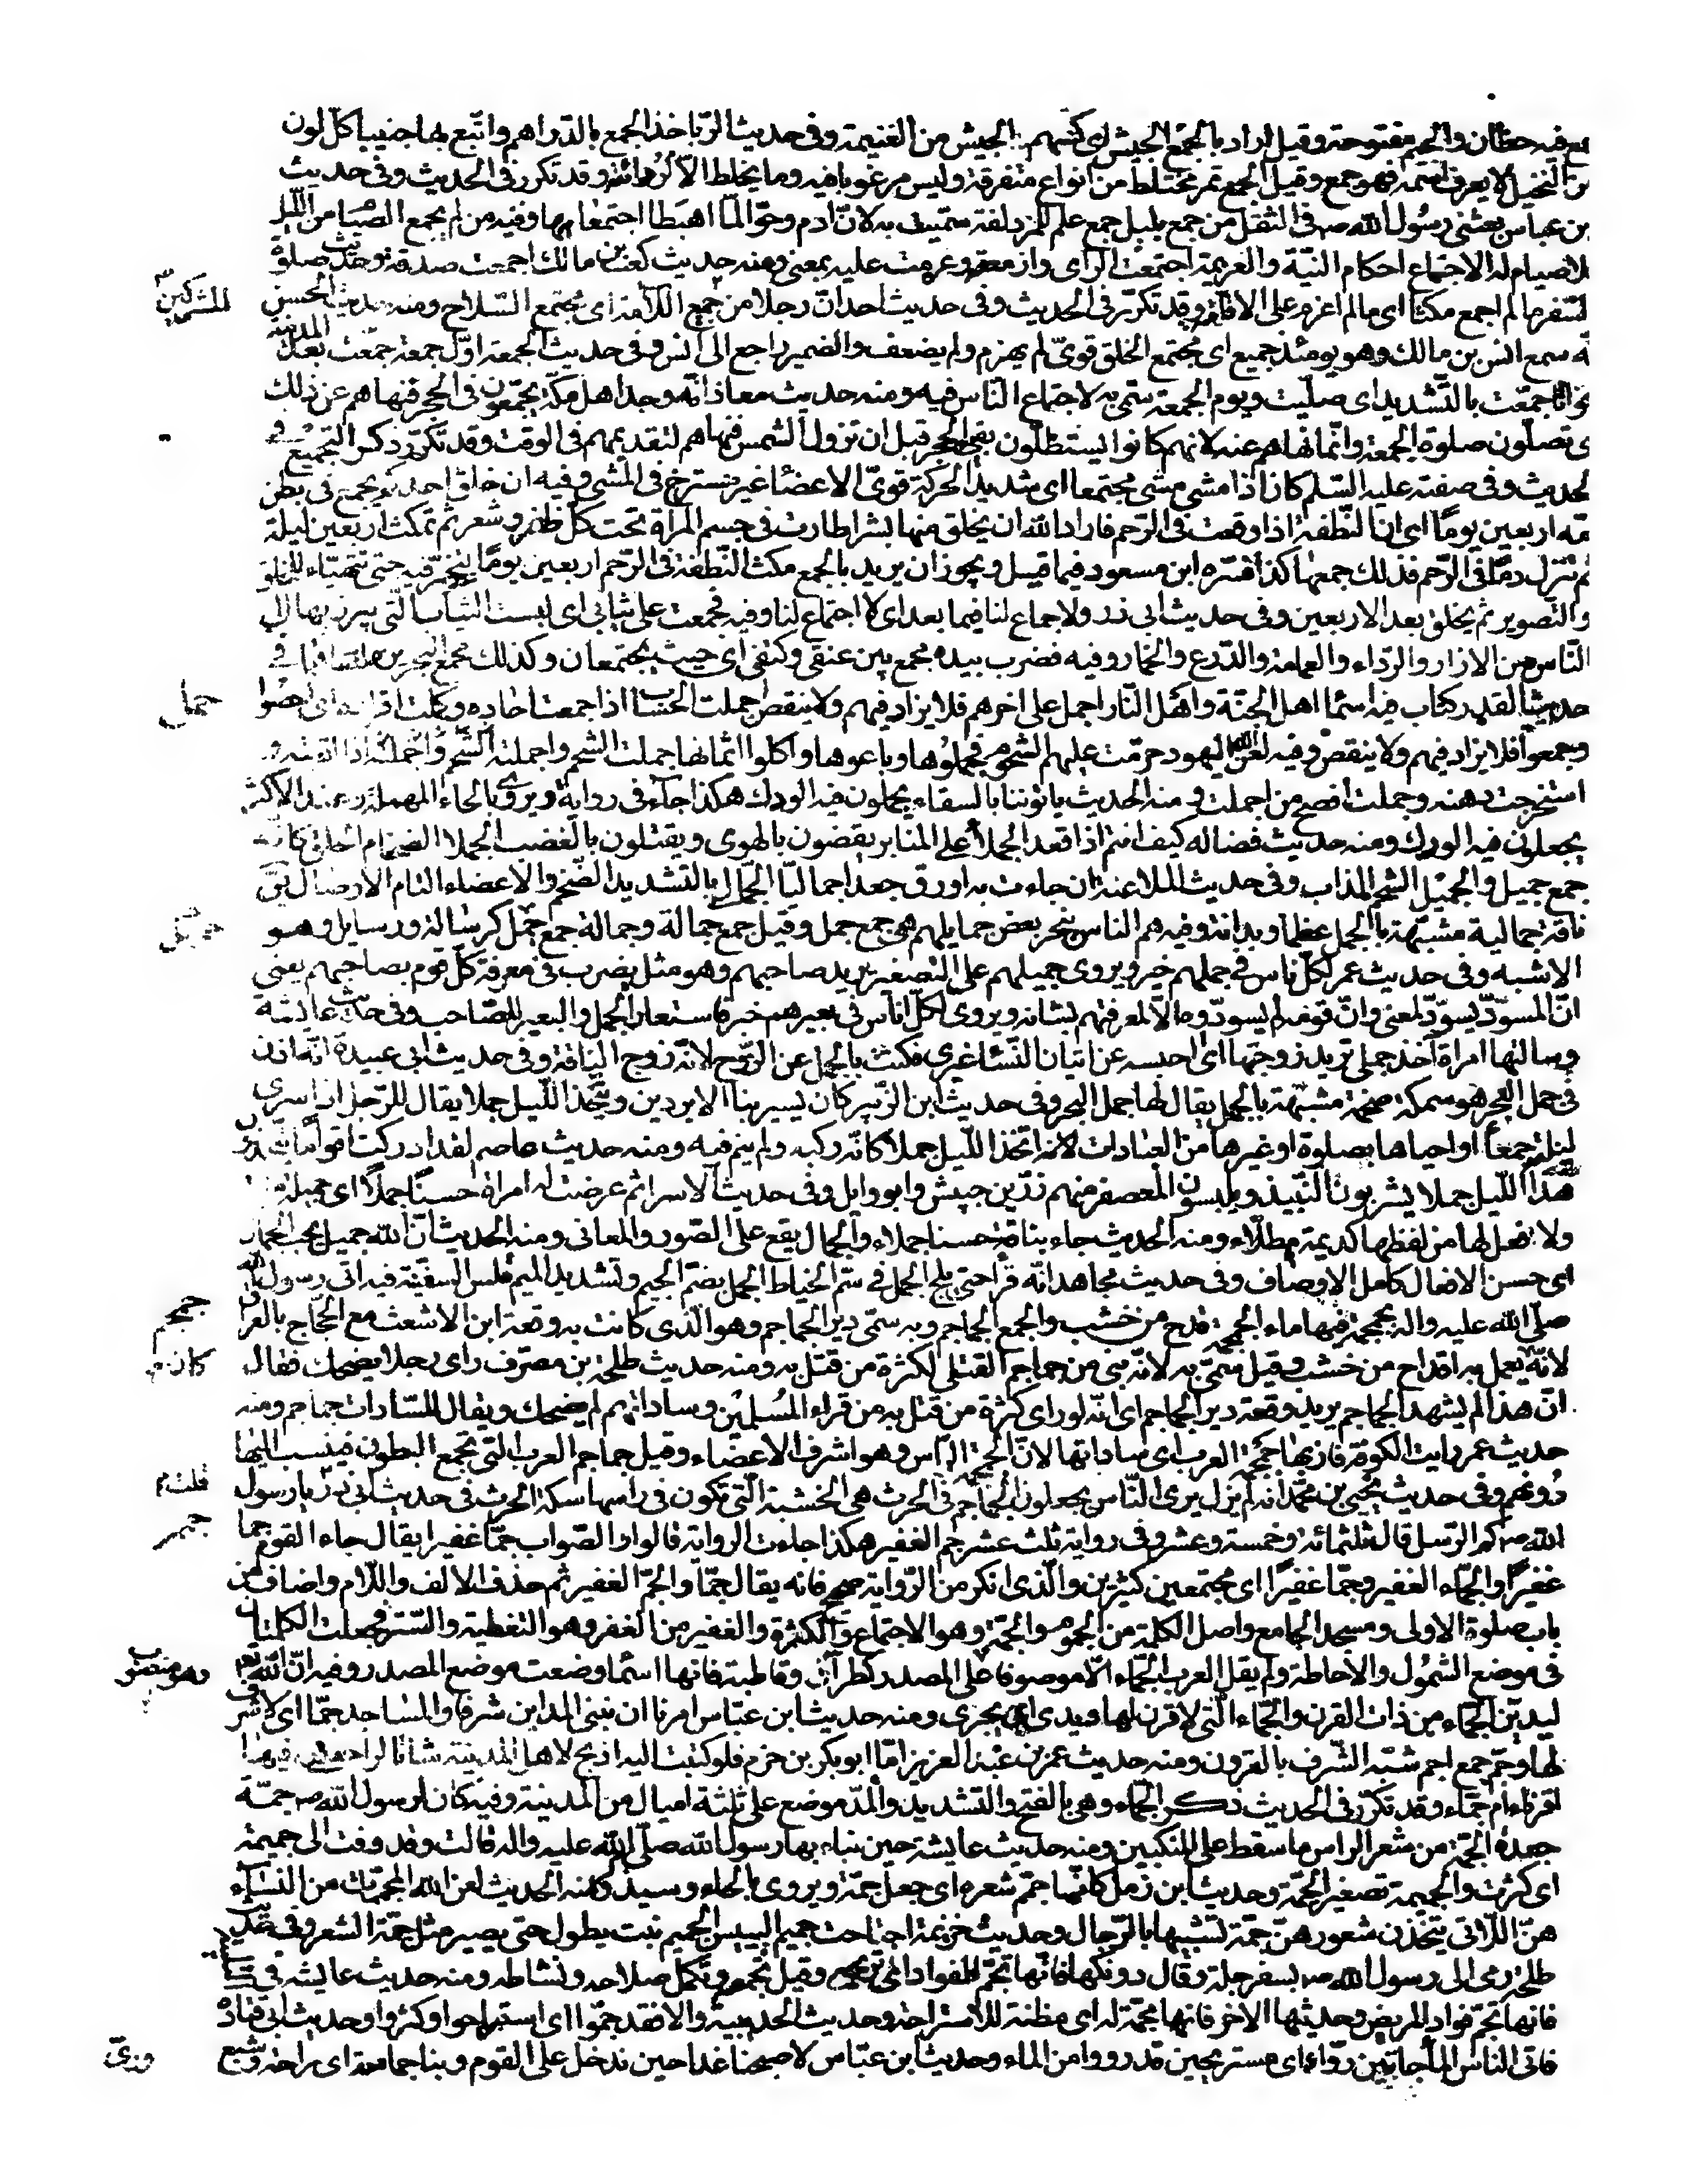 مع فيه حظان والجيم مفتوحة وقيل اراد بالجمع الجيش اى كسهم الجيش من الغنيمة وفى حديث الربا خذ الجمع بالدراهم واتبع بها جنيبا كل لون
من النخيل لا يعرف اسمه فهو جمع وقيل الجمع تمر مختلط من انواع متفرقة وليس مرغوبا فيه وما يخلط الا لرداءته وقد تكرر فى الحديث وفى حديث
بن عباس بعثنى رسول الله صه فى الثقل من جمع بليل جمع علم للمزدلفة سميت به لان ادم وحوا لما اهبطا اجتمعا بها وفيه من لم يجمع الصيام من الليل
فلا صيام له الاجماع احكام النية والعزيمة اجتمعت الراى وازمعته وعزمت عليه بمعنى ومنه حديث كعب بن مالك اجمعت صدقه وحديث صلوة
السفر ما لم اجمع مكثا اى ما لم اعزم على الاقامة وقد تكرر فى الحديث وفى حديث احد ان رجلا من المشركين جميع اللامة اى مجتمع السلاح ومنه حديث الحسن
انه سمع انس بن مالك وهو يومئذ جميع اى مجتمع الخلق قوى لم يهرم ولم يضعف والضمير راجع الى انس وفى حديث الجمعة اول جمعة جمعت بعد المدينة
بجواثا جمعت بالتشديد اى صليت ويوم الجمعة سمى به لاجتماع الناس فيه ومنه حديث معاذ انه وجد اهل مكة يجمعون فى الحجر فنهاهم عن ذلك
اى تصلون صلوة الجمعة وانما نهاهم عنه لانهم كانوا يستظلون بفى الحجر قبل ان تزول الشمس فنهاهم لتقديمهم فى الوقت وقد تكرر ذكر التجميع فى
الحديث وفى صفته عليه السلم كان اذا مشى مشى مجتمعا اى شديد الحركة قوى الاعضا غير مسترخ فى المشى وفيه ان خلق احدكم يجمع فى بطن
امه اربعين يوما اى ان النطفة اذا وقعت فى الرحم فاراد الله ان يخلق منها بشرا طارت فى جسم المراة تحت كل ظفر وشعر ثم تمكث اربعين ليلة
ثم تنزل دما فى الرحم فذلك جمعها كذا فسره ابن مسعود فيما قيل ويجوز ان يريد بالجمع مكث النطفة فى الرحم اربعين يوما تتخمر فيه حتى تتهياء للخلق
والتصوير ثم يخلق بعد الاربعين وفى حديث ابى ذر ولا جماع لنا فيما بعد اى لا اجتماع لنا وفيه فجمعت على ثيابى اى لبست الثياب التى يبرز بها الى
الناس من الازار والرداء والعمامة والدرع والخمار وفيه فضرب بيده مجمع بين عنقى وكتفى اى حيث يجتمعان وكذلك مجمع البحرين ملتقاهما فى
جمل
حديث القدر كتاب فيه اسما اهل الجنة واهل النار اجمل على اخرهم فلا يزاد فيهم ولا ينقص جملت الحساب اذا جمعت احاده وكملت افراده اى احصوا
وجمعوا فلا يزاد فيهم ولا ينقص وفيه لعن الله اليهود حرمت عليهم الشحوم فجملوها وباعوها واكلوا اثمانها جملت الشحم واجملته اذا اذبته و
استخرجت دهنه وجملت افصح من اجملت ومنه الحديث ياتوننا بالسقاء يجملون فيه الودك هكذا جاء فى رواية ويروى بالحاء المهملة وعند الاكثر
يجعلون فيه الودك ومنه حديث فضاله كيف انتم اذا قعد الجملا على المنابر يقضون بالهوى ويقتلون بالغضب الجملا الضخام الخلق كانه
جمع جميل والجميل الشحم المذاب وفى حديث الملاعنة ان جاءت به اورق جعدا جماليا الجمالى بالتشديد الضخم والاعضاء التام الاوصال يق
ناقة جمالية مشبهة بالجمل عظما وبدانة وفيه هم الناس بنحر بعض جمايلهم هى جمع جمل وقيل جمع جمالة وجمالة جمع جمل كرسالة ورسايل وهو
الاشبه وفى حديث عمر لكل ناس فى جملهم خبر ويروى جميلهم على التصغير يريد صاحبهم وهو مثل يضرب فى معرفة كل قوم بصاحبهم يعنى
ان المسود يسود لمعنى وان قومه لم يسودوه الا لمعرفتهم بشانه ويروى لكل اناس فى بعيرهم خبر فاستعار الجمل والبعير للصاحب وفى حديث عايشة
وسالتها امراة اخذ جملى تريد زوجها اى احبسه عن اتيان النسا غيرى فكنت بالجمل عن الزوج لانه زوج الناقة وفى حديث ابى عبيدة انه اذن
فى جمل البحر هو سمكة ضخمة مشبهة بالجمل يقال لها جمل البحر وفى حديث ابن الزبير كان يسير بنا الابردين ويتخذ الليل جملا يقال للرجل اذا سرى
ليلته جمعا او احياها بصلوة او غيرها من العبادات لانه اتخذ الليل جملا كانه ركبه ولم ينم فيه ومنه حديث عاصم لقد ادركت اقواما يتخذون
هذا الليل جملا يشربون النبيذ ويلبسون المعصفر منهم زر بن حبيش وابو وايل وفى حديث الاسرا ثم عرضت له امراة حسنا جملا اى جميلة
ولا افعل لها من لفظها كديمة هطلاء ومنه الحديث جاء بناقة حسنا جملاء والجمال يقع على الصور والمعانى ومنه الحديث ان الله جميل يحب الجمال
اى حسن الافعال كامل الاوصاف وفى حديث مجاهد انه قرا حتى يلج الجمل فى سم الخياط الجمل بضم الجيم وتشديد الميم قلس السفينة فيه اتى رسول الله
جمجم
صلى الله عليه واله بجمجمة فيها ماء الجمجمة قدح من خشب والجمع الجماجم وبه سمى دير الجماجم وهو الذى كانت به وقعة ابن الاشعث مع الحجاج بالعراق
لانه كان يعمل به اقداح من خشب وقيل سمى به لانه بنى من جماجم القتلى لكثرة من قتل به ومنه حديث طلحة بن مصرف راى رجلا يضحك فقال
ان هذا لم يشهد الجماجم يريد وقعة دير الجماجم اى انه لو راى كثرة من قتل به من قراء المسلمين وساداتهم لم يضحك ويقال للسادات جماجم ومنه
حديث عمر ايت الكوفة فان بها جمجمة العرب اى ساداتها لان الجمجمة الراس وهو اشرف الاعضاء وقيل جماجم العرب التى تجمع البطون فينسب اليها
دونهم وفى حديث يحيى بن محمد انه لم يزل يرى الناس يجعلون الجماجم فى الحرث هى الخشبة التى تكون فى راسها سكة الحرث فى حديث ابى ذر قلت يا رسول
جمم
الله صه كم الرسل قال ثلثمائة وخمسة وعشر وفى رواية ثلث عشر جم الغفير هكذا جاءت الرواية قالوا والصواب جما غفيرا يقال جاء القوم جما
غفيرا والجماء الغفير وجما غفيرا اى مجتمعين كثيرين والذى انكر من الرواية صحيح فانه يقال جما والجم الغفير ثم حذف الالف واللام واضاف من
باب صلوة الاولى ومسجد الجامع واصل الكلمة من الجموم والجمة وهو الاجتماع والكثرة والغفير من الغفر وهو التغطية والستر فجعلت الكلمتان
فى موضع الشمول والاحاطة ولم يقل العرب الجماء الا موصوفا وهو منصوب على المصدر كطرا وقاطبة فانها اسما وضعت موضع المصدر وفيه ان الله تعه
ليدين الجماء من ذات القرن والجماء التى لا قرن لها ويدى اى يجزى ومنه حديث ابن عباس امرنا ان نبنى المداين شرفا والمساجد جما اى لا شرف
لها وجم جمع اجم شبه الشرف بالقرون ومنه حديث عمر بن عبد العزيز اما ابو بكر بن حزم فلو كتبت اليه اذبح لاهل المدينة شاة لراجعنى فيها
اقرناء ام جماء وقد تكرر فى الحديث ذكر الجماء وهى بالفتح والتشديد والمد موضع على ثلثة اميال من المدينة وفيه كان لرسول الله صه جمة
جعدة الجمة من شعر الراس ما سقط على المنكبين ومنه حديث عايشة حين بناء بها رسول الله صلى الله عليه واله قالت وقد وفت الى جميمة
اى كثرت والجميمة تصغير الجمة وحديث ابن زمل كانما جمم شعره اى جعل جمة ويروى بالحاء وسيذكر ومنه الحديث لعن الله المجممات من النساء
هن اللاتى يتخذن شعورهن جمة تشبيها بالرجال وحديث خزيمة اجتاحت جميم اليبيس الجميم نبت يطول حتى يصير مثل جمة الشعر وفى حديث
طلحة رمى الى رسول الله صه بسفرجلة وقال دونكها فانها تجم الفواد اى تريحه وقيل تجمعه وتكمل صلاحه ونشاطه ومنه حديث عايشة فى التلبينة
فانها تجم فواد المريض وحديثها الاخر فانها مجمة له اى مظنة للاستراحة وحديث الحديبية والا فقد جموا اى استراحوا وكثروا وحديث ابى قتادة
فاتى الناس الماء جامين رواء اى مستريحين قد رووا من الماء وحديث ابن عباس لاصبحنا غدا حين ندخل على القوم وبنا جمامة اى راحة وشبع
ورى